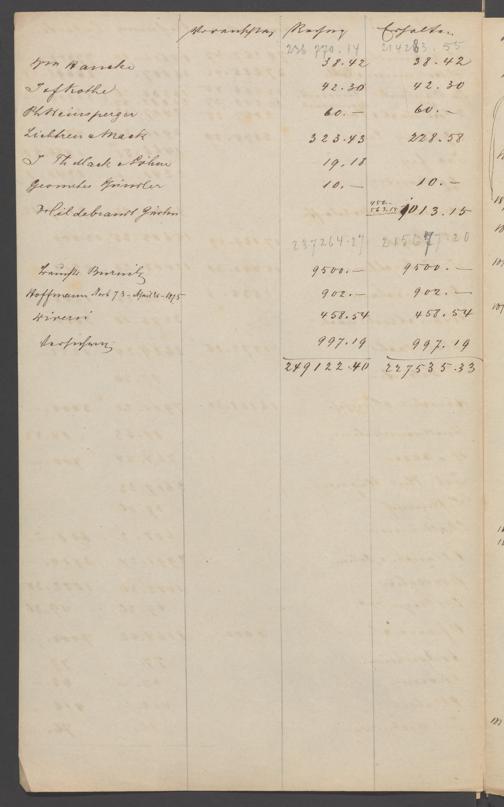 Voranschlag Rechng Erhalten
236 770.14 214263.55
Wm Hancke 38.42 38.42
Jos Kothe 42.30 42.30
Ph Heinsperger 60.— 60.—
Liebhen & Mack 323.43 228.58
J. Th Mack & Söhne 19.18
Geometer Günther 10.— 10.—
Hildebrandt Gärtn 450.— 563.15 1013.15
237264.27 215677.20
Burnitz 9500.— 9500.—
Hoffmann Novb 73 - April 1875 902.— 902.—
Diversi 458.54 458.54
997.19 997.19
249122.40 227535.33